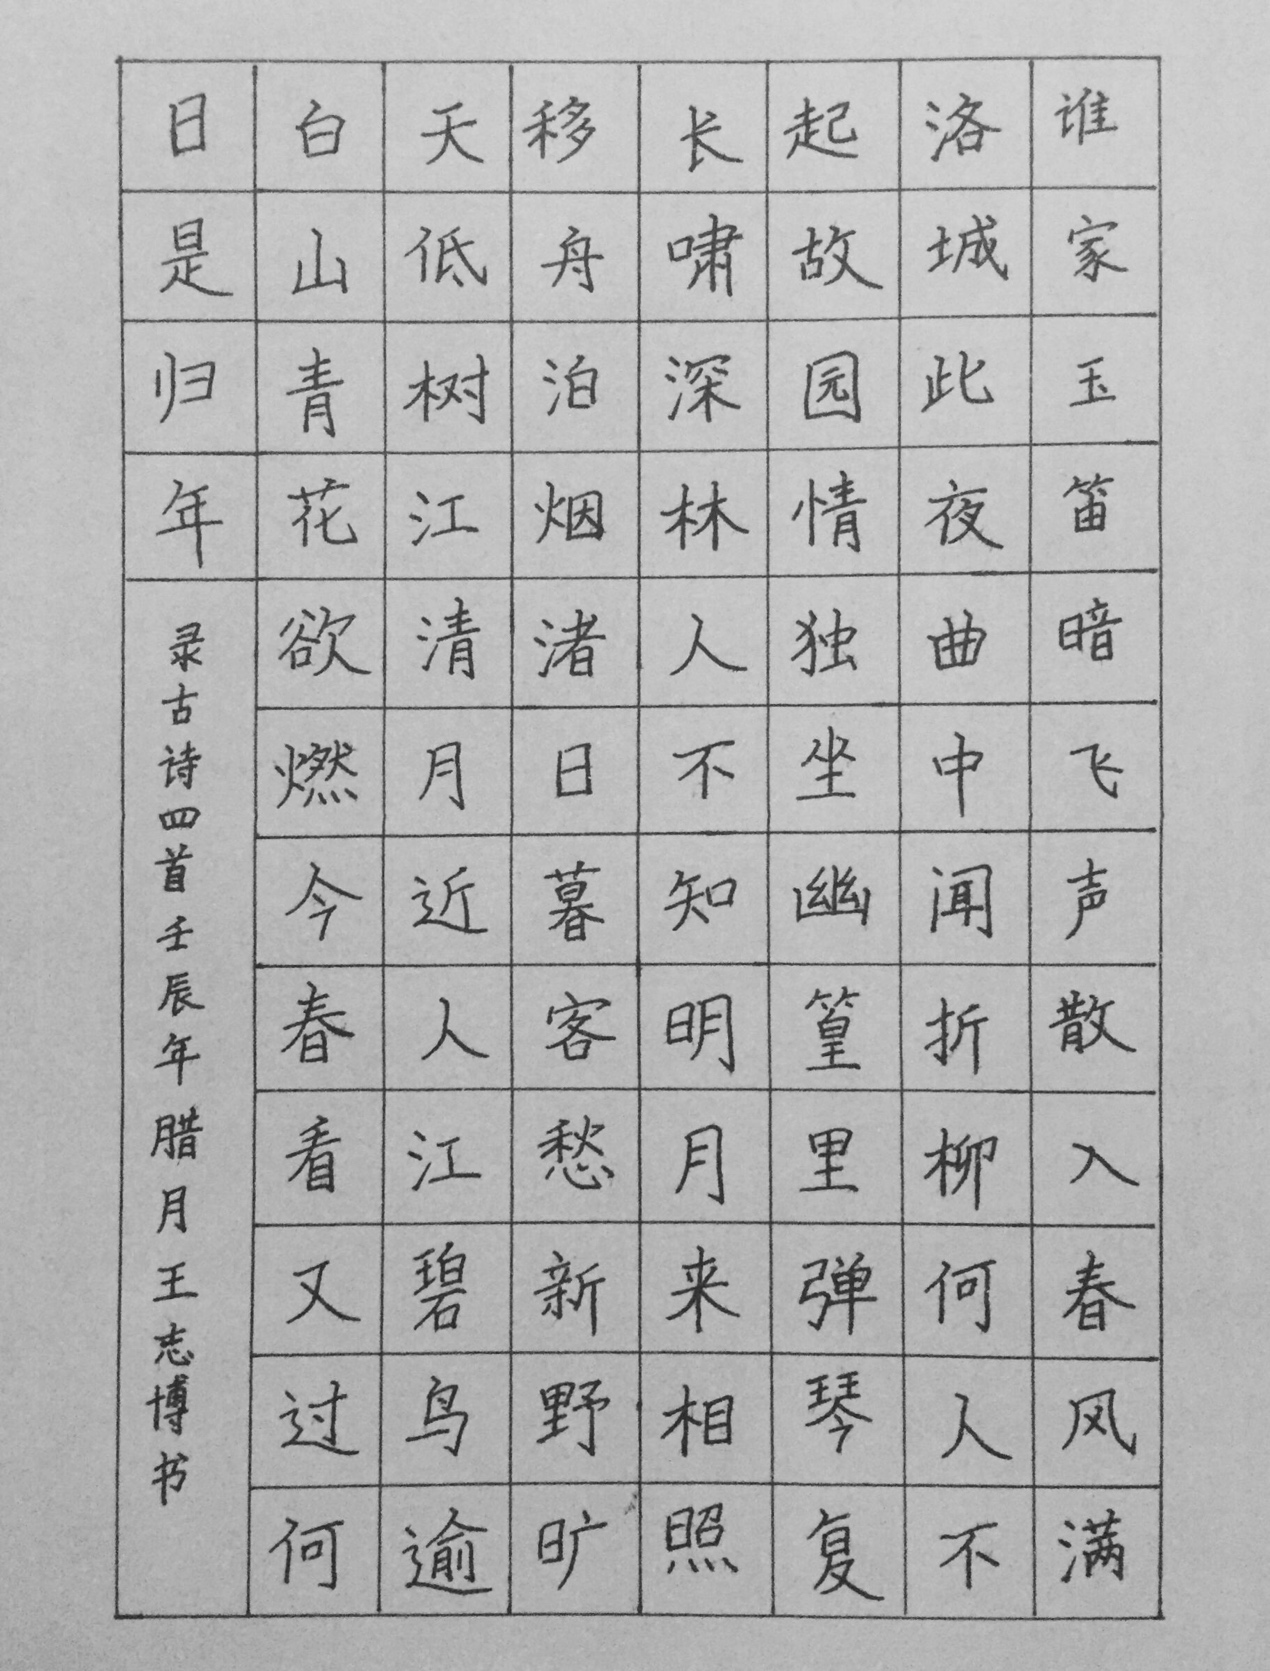 谁家玉笛暗飞声散入春风满
洛城此夜曲中闻折柳何人不
起故园情独坐幽篁里弹琴复
长啸深林人不知明月来相照
移舟泊烟渚日暮客愁新野旷
天低树江清月近人江碧鸟逾
白山青花欲燃今春看又过何
日是归年
录古诗四首壬辰年腊月王志博书